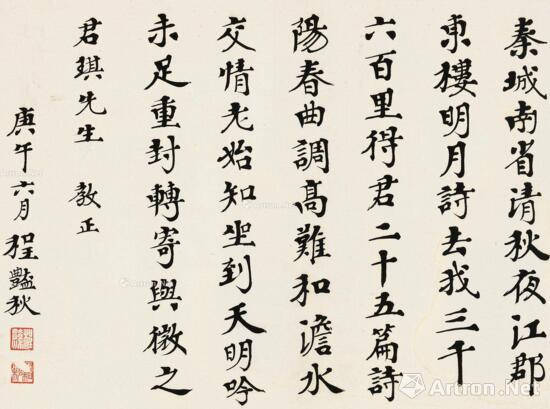 秦城南省清秋夜江郡
東樓明月詩去我三千
六百里得君二十五篇詩
陽春曲調高難和澹水
交情老始知坐到天明吟
未足重封轉寄與微之
君琪先生 教正
庚午六月程豔秋
Artron.Net